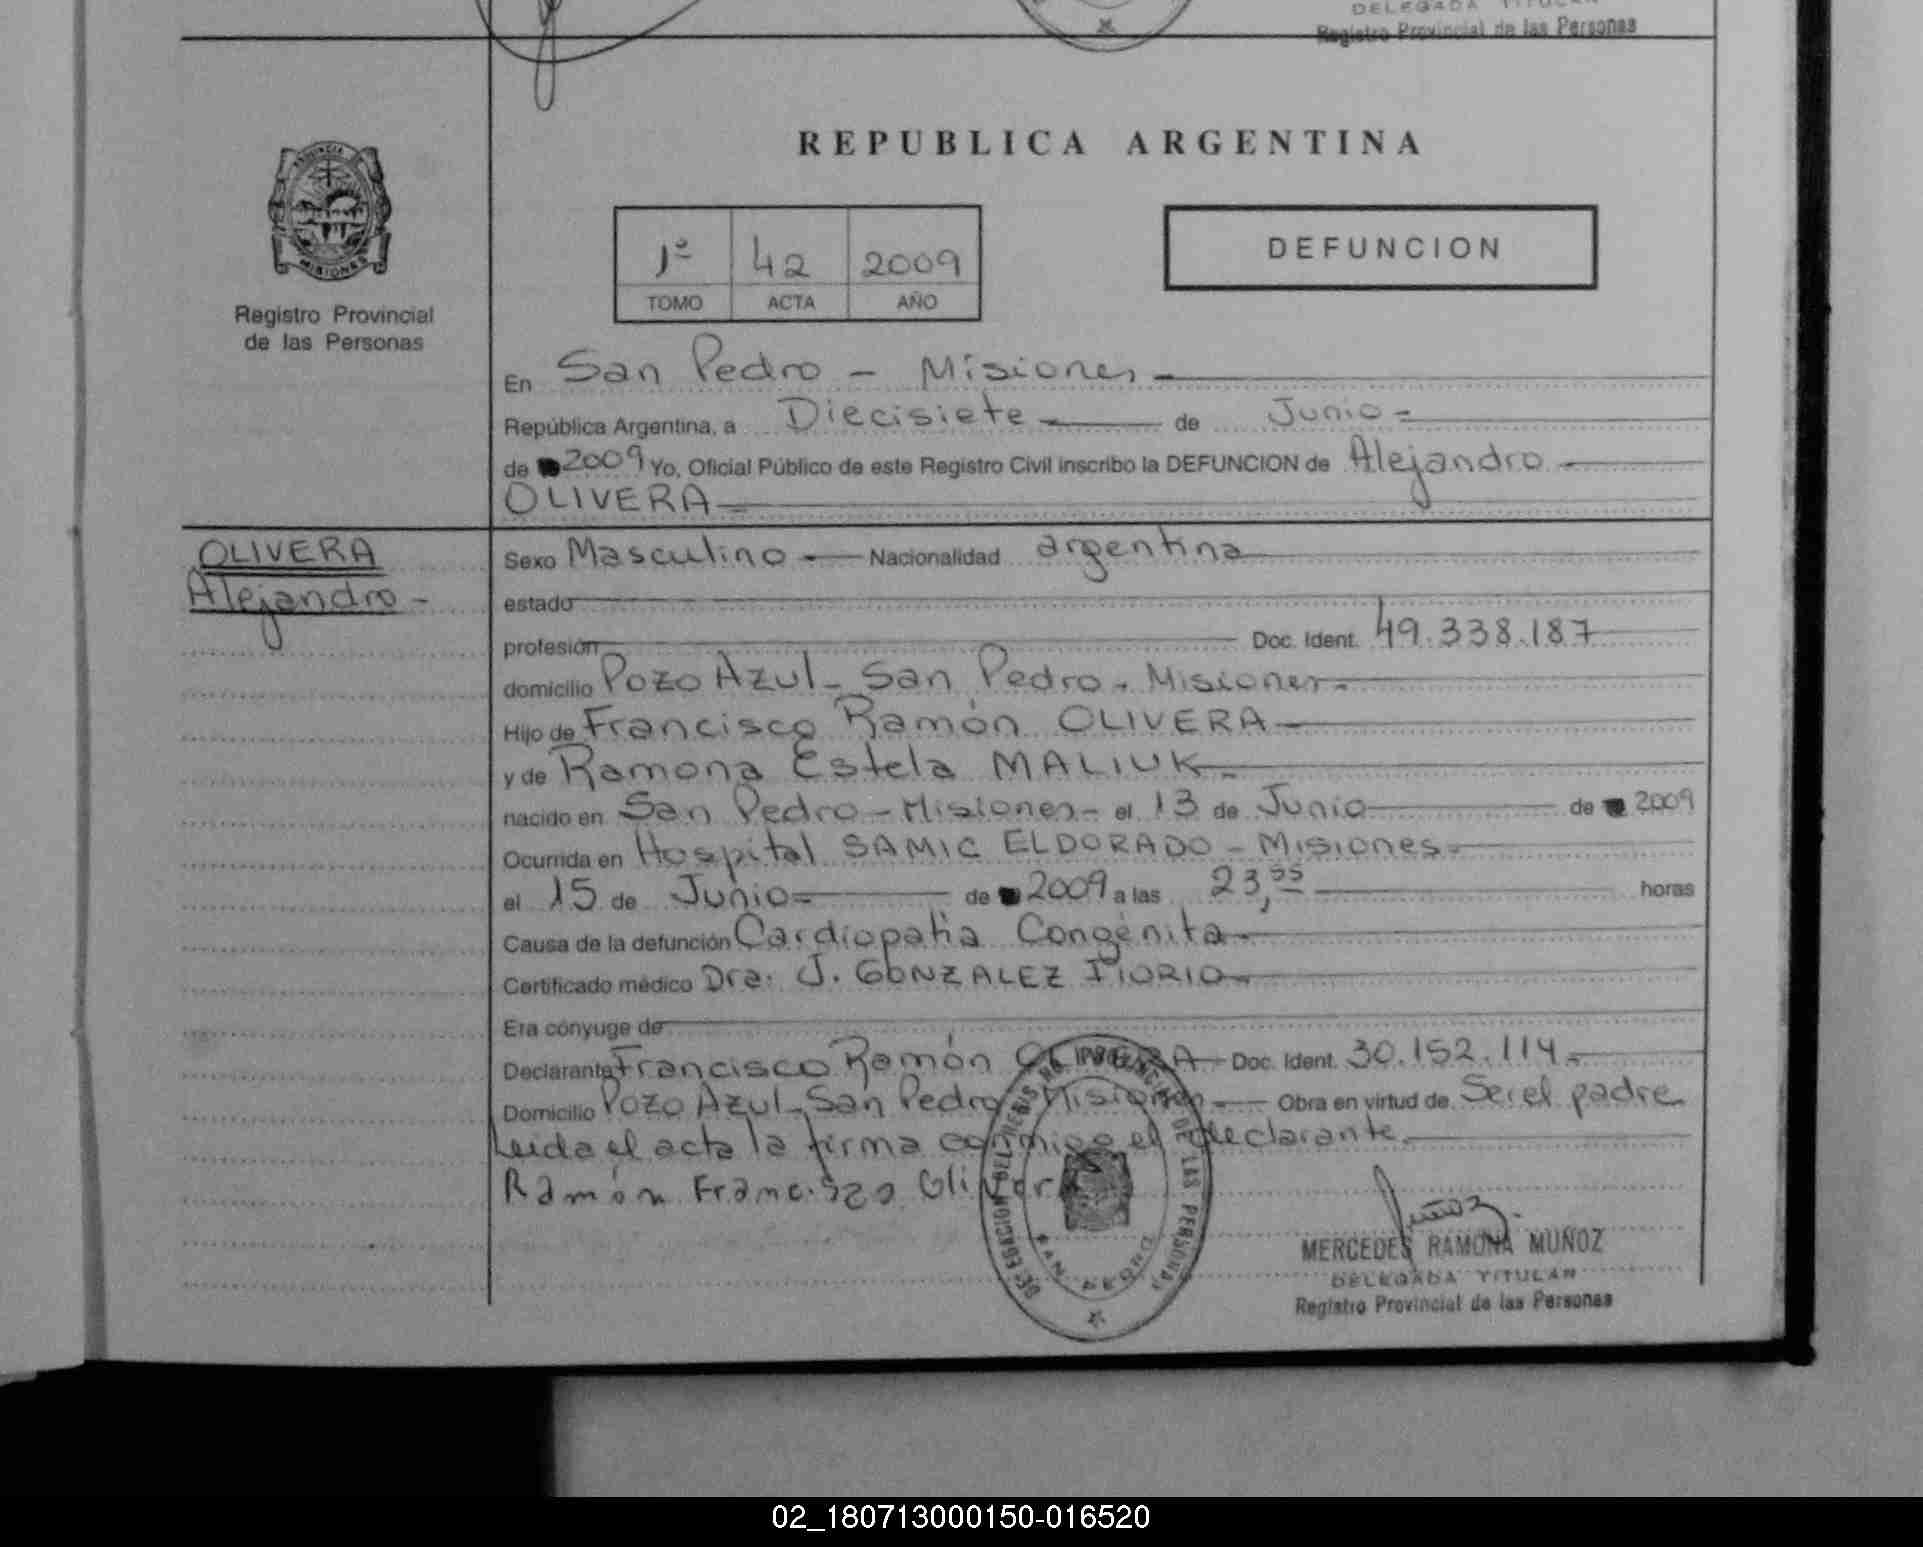 DELEGADA TITULAR
Registro Provincial de las Personas
REPUBLICA ARGENTINA
PROVINCIA DE
MISIONES
1º 42 2009
TOMO ACTA AÑO
DEFUNCION
Registro Provincial
de las Personas
En San Pedro - Misiones -
República Argentina, a Diecisiete - de Junio -
de 2009 Yo, Oficial Público de este Registro Civil inscribo la DEFUNCION de Alejandro -
OLIVERA -
OLIVERA
Alejandro -
Sexo Masculino - Nacionalidad argentina
estado
profesión Doc. Ident. 49.338.187
domicilio Pozo Azul - San Pedro - Misiones -
Hijo de Francisco Ramón OLIVERA -
y de Ramona Estela MALIUK -
nacido en San Pedro - Misiones - el 13 de Junio de 2009
Ocurrida en Hospital SAMIC ELDORADO - Misiones -
el 15 de Junio - de 2009 a las 23,55 horas
Causa de la defunción Cardiopatia Congénita -
Certificado médico Dra. J. GONZALEZ FIORIO -
Era cónyuge de
Declarante Francisco Ramón OLIVERA - Doc. Ident. 30.152.114 -
Domicilio Pozo Azul - San Pedro Misiones - Obra en virtud de Ser el padre
Leida el acta la firma conmigo el declarante -
Ramón Francisco Oliver
DELEGACION DEL REGISTRO PROVINCIAL DE LAS PERSONAS
SAN PEDRO
Muñoz
MERCEDES RAMONA MUÑOZ
DELEGADA TITULAR
Registro Provincial de las Personas
02_180713000150-016520